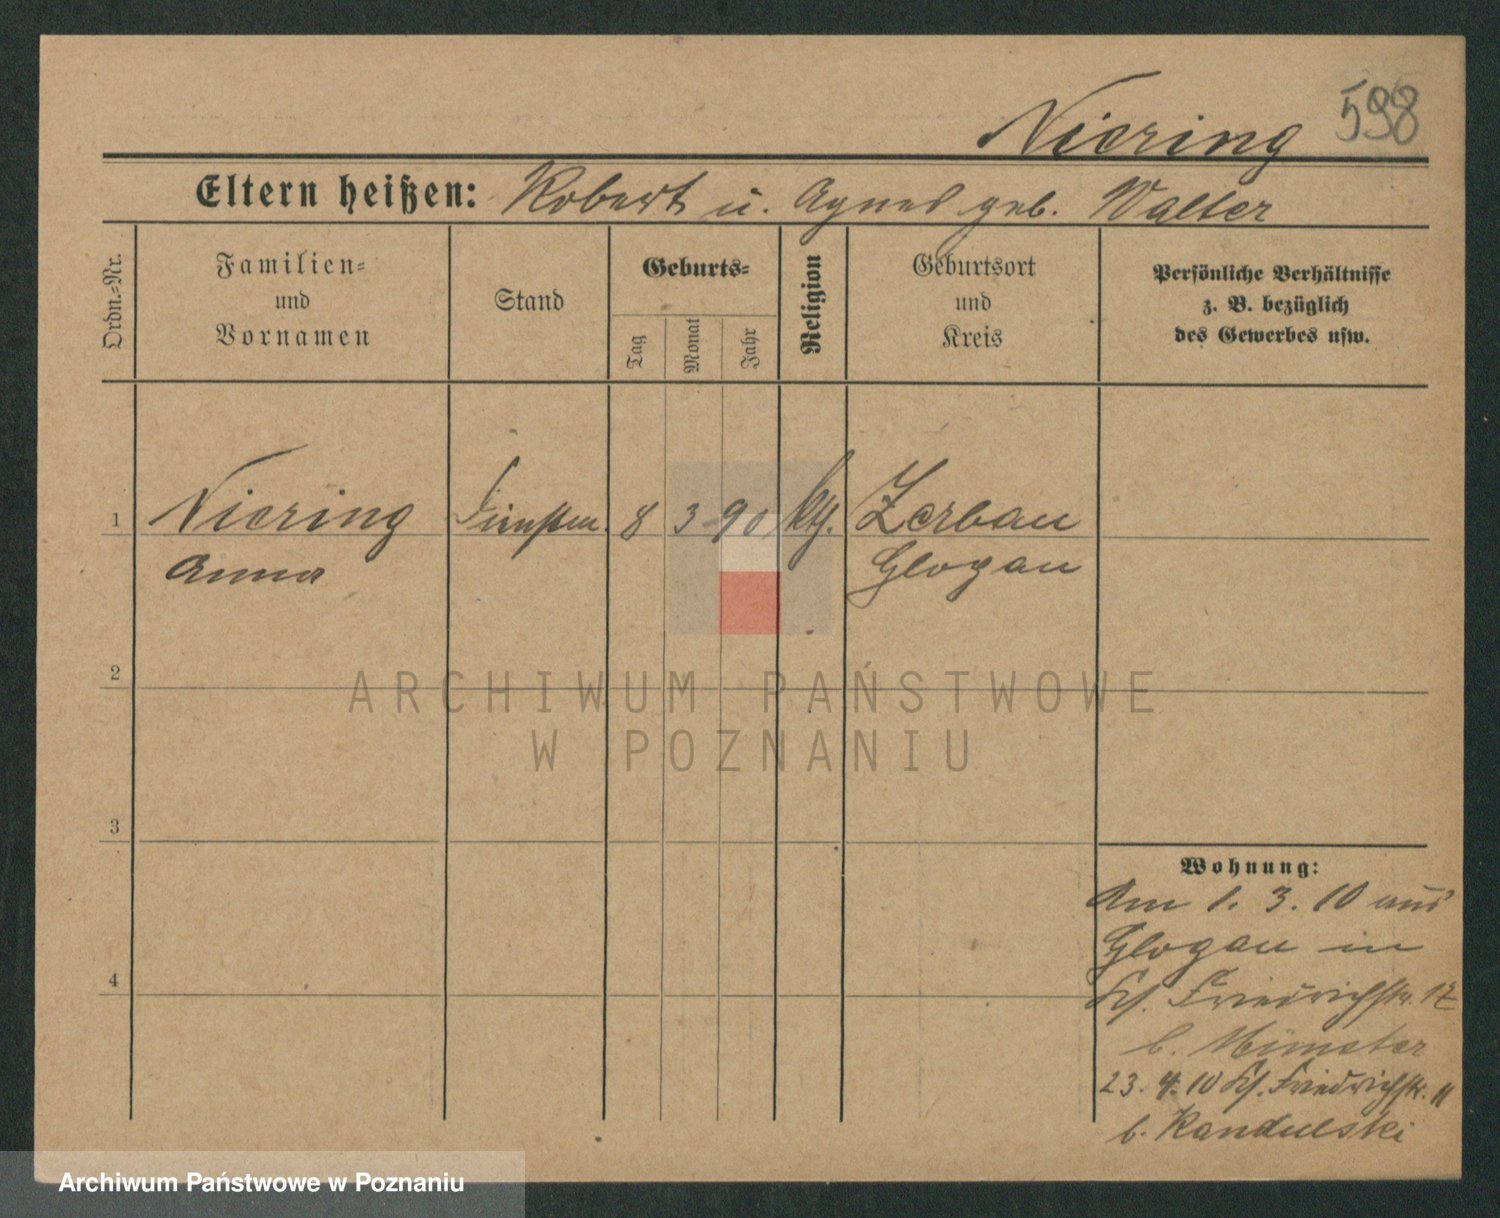 598
Niering
Eltern heißen: Robert u. Agnes geb. Walter
Ordn.-Nr.
Familien-
und
Vornamen
Stand
Geburts-
Tag
Monat
Jahr
Religion
Geburtsort
und
Kreis
Persönliche Verhältnisse
z. B. bezüglich
des Gewerbes usw.
1 Niering 8 3 90 kth. Zerbau
Anna Glogau
2
ARCHIWUM PAŃSTWOWE
W POZNANIU
3
Wohnung:
Am 1. 3. 10 aus
Glogau in
4
Friedrichstr. 17
b. Münster
23. 4. 10 Friedrichstr. 11
b. Kandulski
Archiwum Państwowe w Poznaniu